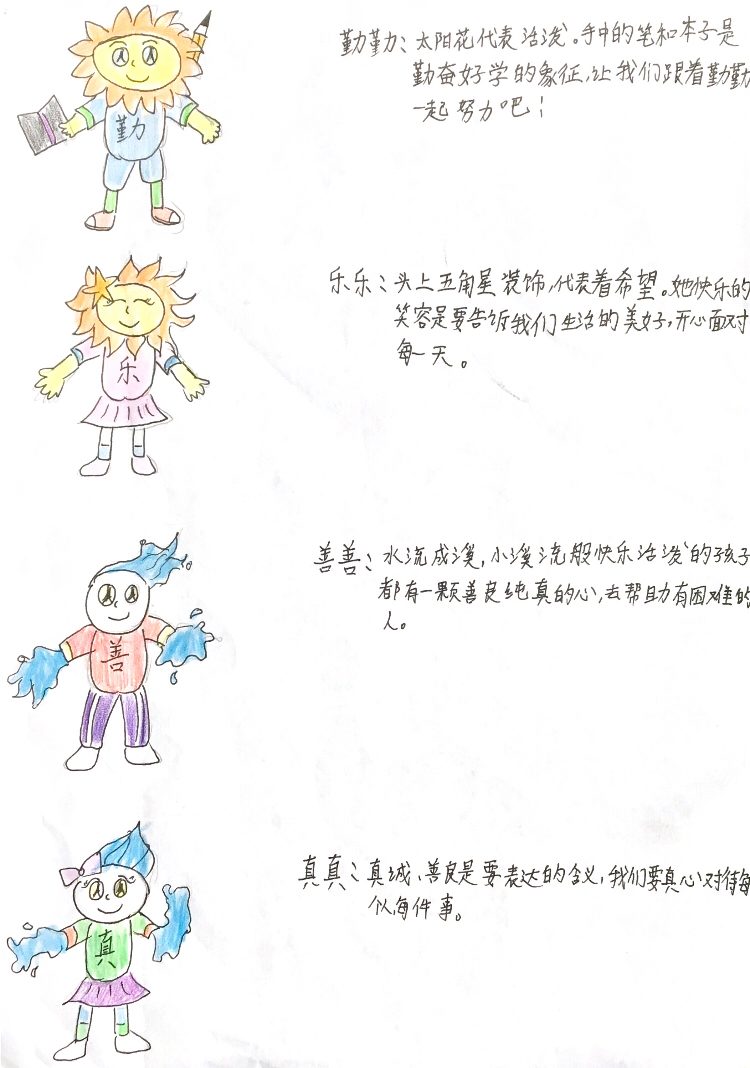 勤勤：太阳花代表活泼。手中的笔和本子是
勤奋好学的象征，让我们跟着勤勤
一起努力吧！
勤
乐乐：头上五角星装饰，代表着希望。她快乐的
笑容是要告诉我们生活的美好，开心面对
每一天。
乐
善善：水流成溪，小溪流般快乐活泼的孩子
都有一颗善良纯真的心，去帮助有困难的
人。
善
真真：真诚、善良是要表达的含义，我们要真心对待每
似每件事。
真